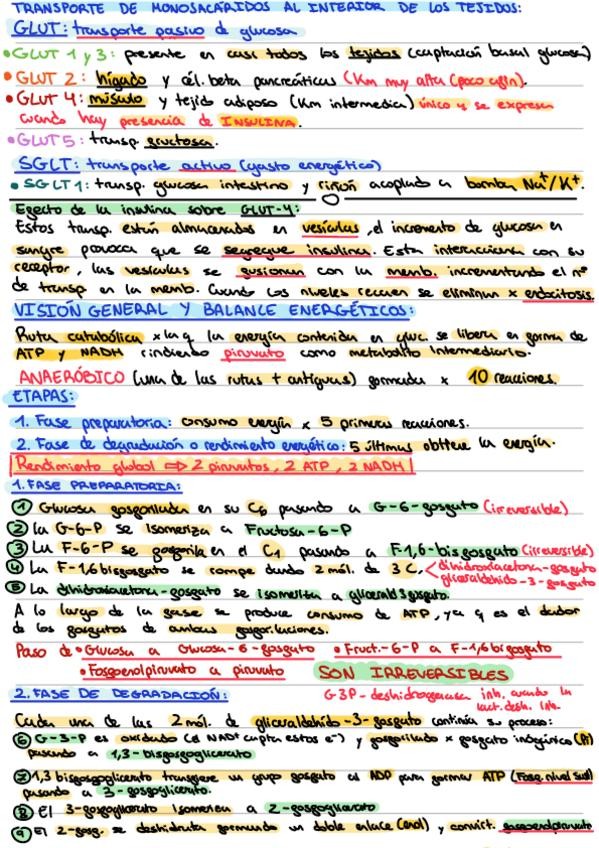 TRANSPORTE DE MONOSACÁRIDOS AL INTERIOR DE LOS TEJIDOS:
GLUT: transporte pasivo de glucosa
• GLUT 1 y 3: presente en casi todos los tejidos (captación basal glucosa)
• GLUT 2: hígado y cél. beta pancreáticas (Km muy alta (poca afin).
• GLUT 4: músculo y tejido adiposo (Km intermedia) único q se expresa
cuando hay presencia de INSULINA.
• GLUT5: transp. fructosa.
SGLT: transporte activo (gasto energético)
• SGLT1: transp. glucosa intestino y riñón acoplado a bomba Na+/K+.
Efecto de la insulina sobre GLUT-4:
Estos transp. están almacenados en vesículas, el incremento de glucosa en
sangre provoca que se segregue insulina. Esta interacciona con su
receptor, las vesículas se fusionan con la memb. incrementando el nº
de transp en la memb. Cuando los niveles recaen se eliminan x endocitosis.
VISIÓN GENERAL Y BALANCE ENERGÉTICOS:
Ruta catabólica x la q la energía contenida en gluc. se libera en forma de
ATP y NADH rindiendo piruvato como metabolito intermediario.
ANAERÓBICO (una de las rutas + antiguas) formada x 10 reacciones.
ETAPAS:
1. Fase preparatoria: consumo energía x 5 primeras reacciones.
2. Fase de degradación o rendimiento energético: 5 últimas obtiene la energía.
Rendimiento global ⇒ 2 piruvatos, 2 ATP, 2 NADH
1. FASE PREPARATORIA:
① Glucosa fosforilada en su C6 pasando a G-6-fosfato (irreversible)
② La G-6-P se isomeriza a Fructosa-6-P
③ La F-6-P se fosforila en el C1 pasando a F-1,6-bisfosfato (irreversible)
④ La F-1,6 bisfosfato se rompe dando 2 mól. de 3 C, < dihidroxiacetona-fosfato
gliceraldehido-3-fosfato
⑤ La dihidroxiacetona-fosfato se isomeriza a glicerald 3 fosfato.
A lo largo de la fase se produce consumo de ATP, ya q es el dador
de los fosfatos de ambas fosforilaciones.
Paso de • Glucosa a Glucosa-6-fosfato • Fruct.-6-P a F-1,6 bifosfato
• Fosfoenolpiruvato a piruvato SON IRREVERSIBLES
2. FASE DE DEGRADACIÓN: G3P-deshidrogenasa inh. cuando la
lact. desh. inh.
Cada una de las 2 mól. de gliceraldehido-3-fosfato continúa su proceso:
⑥ G-3-P es oxidado (el NAD+ capta estos e-) y fosforilado x fosfato inorgánico (Pi)
pasando a 1,3-bisfosfoglicerato
⑦ 1,3 bisfosfoglicerato transfiere un grupo fosfato al ADP para formar ATP (Fosf. nivel sust)
pasando a 3-fosfoglicerato.
⑧ El 3-fosfoglicerato isomeriza a 2-fosfoglicerato
⑨ El 2-fosg. se deshidrata formando un doble enlace (enol) y convirt. fosfoenolpiruvato